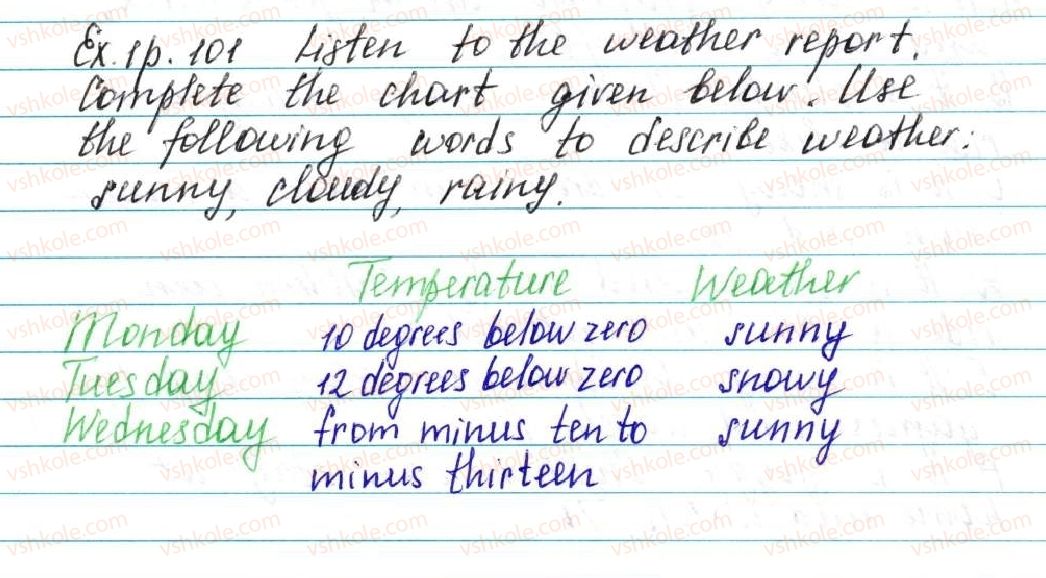 Ex. 1 p. 101 Listen to the weather report.
Complete the chart given below. Use
the following words to describe weather:
sunny, cloudy, rainy.
Temperature Weather
Monday 10 degrees below zero sunny
Tuesday 12 degrees below zero snowy
Wednesday from minus ten to sunny
minus thirteen
vshkole.com